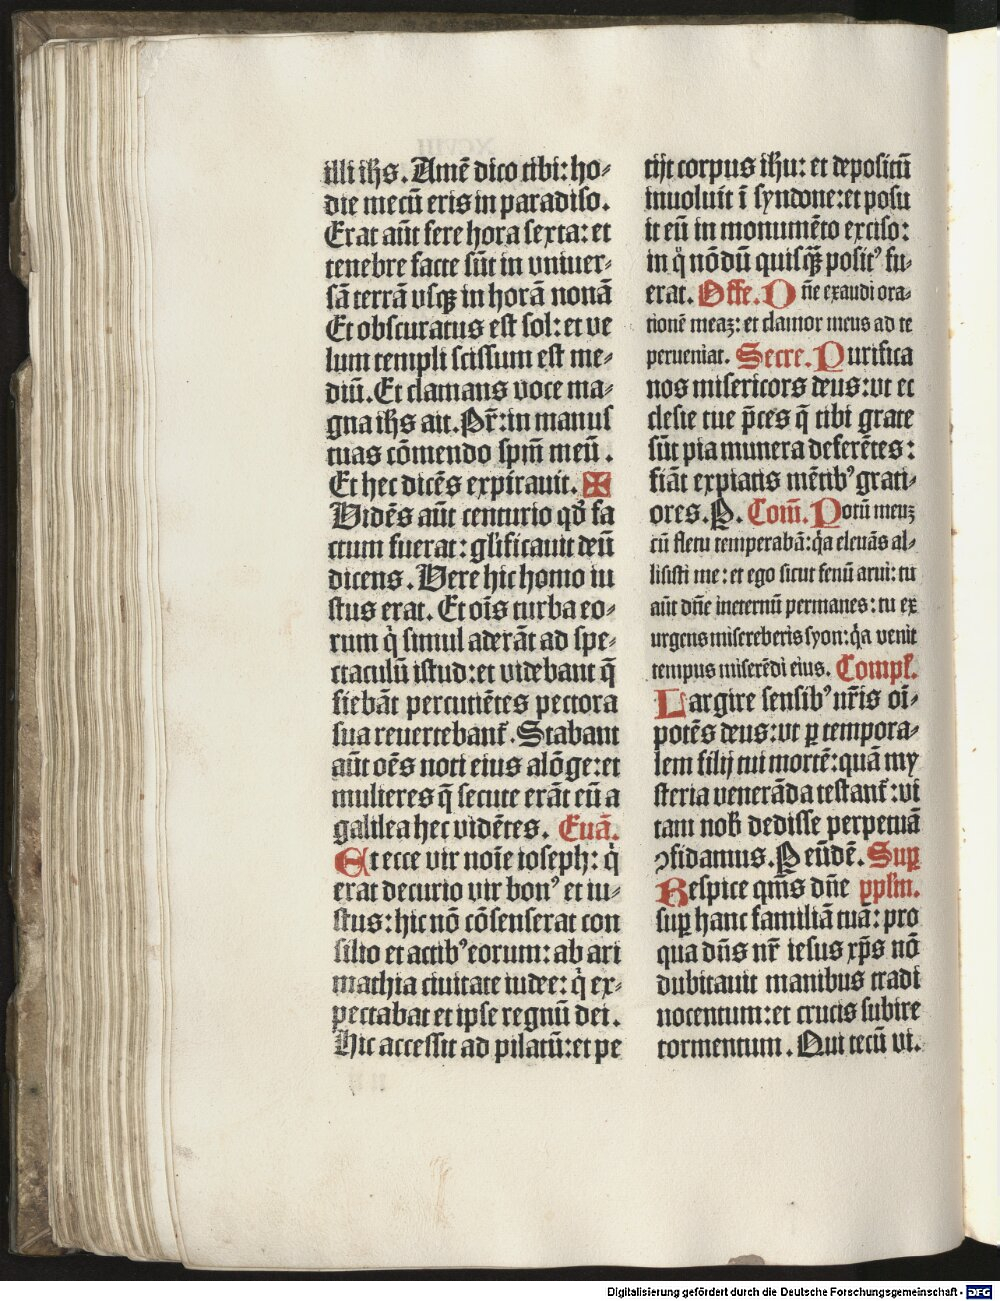 illi ihs. Amē dico tibi: ho-
die mecū eris in paradiso.
Erat aūt fere hora sexta: et
tenebre facte sūt in vniuer-
sā terrā vsqꝫ in horā nonā
Et obscuratus est sol: et ve
lum templi scissum est me-
diū. Et clamans voce ma-
gna ihs ait. Pr̄: in manus
tuas cōmendo spm̄ meū.
Et hec dicēs expirauit. ✠
Uidēs aūt centurio qd̓ fa
ctum fuerat: glificauit deū
dicens. Uere hic homo iu
stus erat. Et oīs turba eo-
rum q̇ simul aderāt ad spe-
ctaculū istud: et videbant q̄
fiebāt percutiētes pectora
sua reuertebant᷑. Stabant
aūt oēs noti eius alōge: et
mulieres q̄ secute erāt eū a
galilea hec vidētes. Euā.
Et ecce vir noīe ioseph: q̇
erat decurio vir bonꝰ et iu-
stus: hic nō cōsenserat con
silio et actibꝰ eorum: ab ari
mathia ciuitate iudee: q̇ ex-
pectabat et ipse regnū dei.
Hic accessit ad pilatū: et pe
tijt corpus ihu: et depositū
inuoluit ī syndone: et posu
it eū in monumēto exciso:
in q̊ nōdū quisqꝫ̄ positꝰ fu-
erat. Offe. Dn̄e exaudi ora-
tionē meaꝫ: et clamor meus ad te
perueniat. Secre. Purifica
nos misericors deus: vt ec
clesie tue p̄ces q̄ tibi grate
sūt pia munera deferētes:
fiāt expiatis mētibꝰ grati-
ores. P. Com̄. Potū meuꝫ
cū fletu temperabā: q̇a eleuās al-
lisisti me: et ego sicut fenū arui: tu
aūt dn̄e ineternū permanes: tu ex
urgens misereberis syon: q̇a venit
tempus miserēdi eius. Compl̄.
Largire sensibꝰ nr̄is oī-
potēs deus: vt ꝑ tempora-
lem filij tui mortē: quā my
steria venerāda testant᷑: vi
tam nob̄ dedisse perpetuā
ꝯfidamus. P eūdē. Suꝑ
Respice qm̄s dn̄e pplm̄.
suꝑ hanc familiā tuā: pro
qua dn̄s nr̄ iesus xp̄s nō
dubitauit manibus tradi
nocentum: et crucis subire
tormentum. Qui tecū vi.
Digitalisierung gefördert durch die Deutsche Forschungsgemeinschaft - DFG